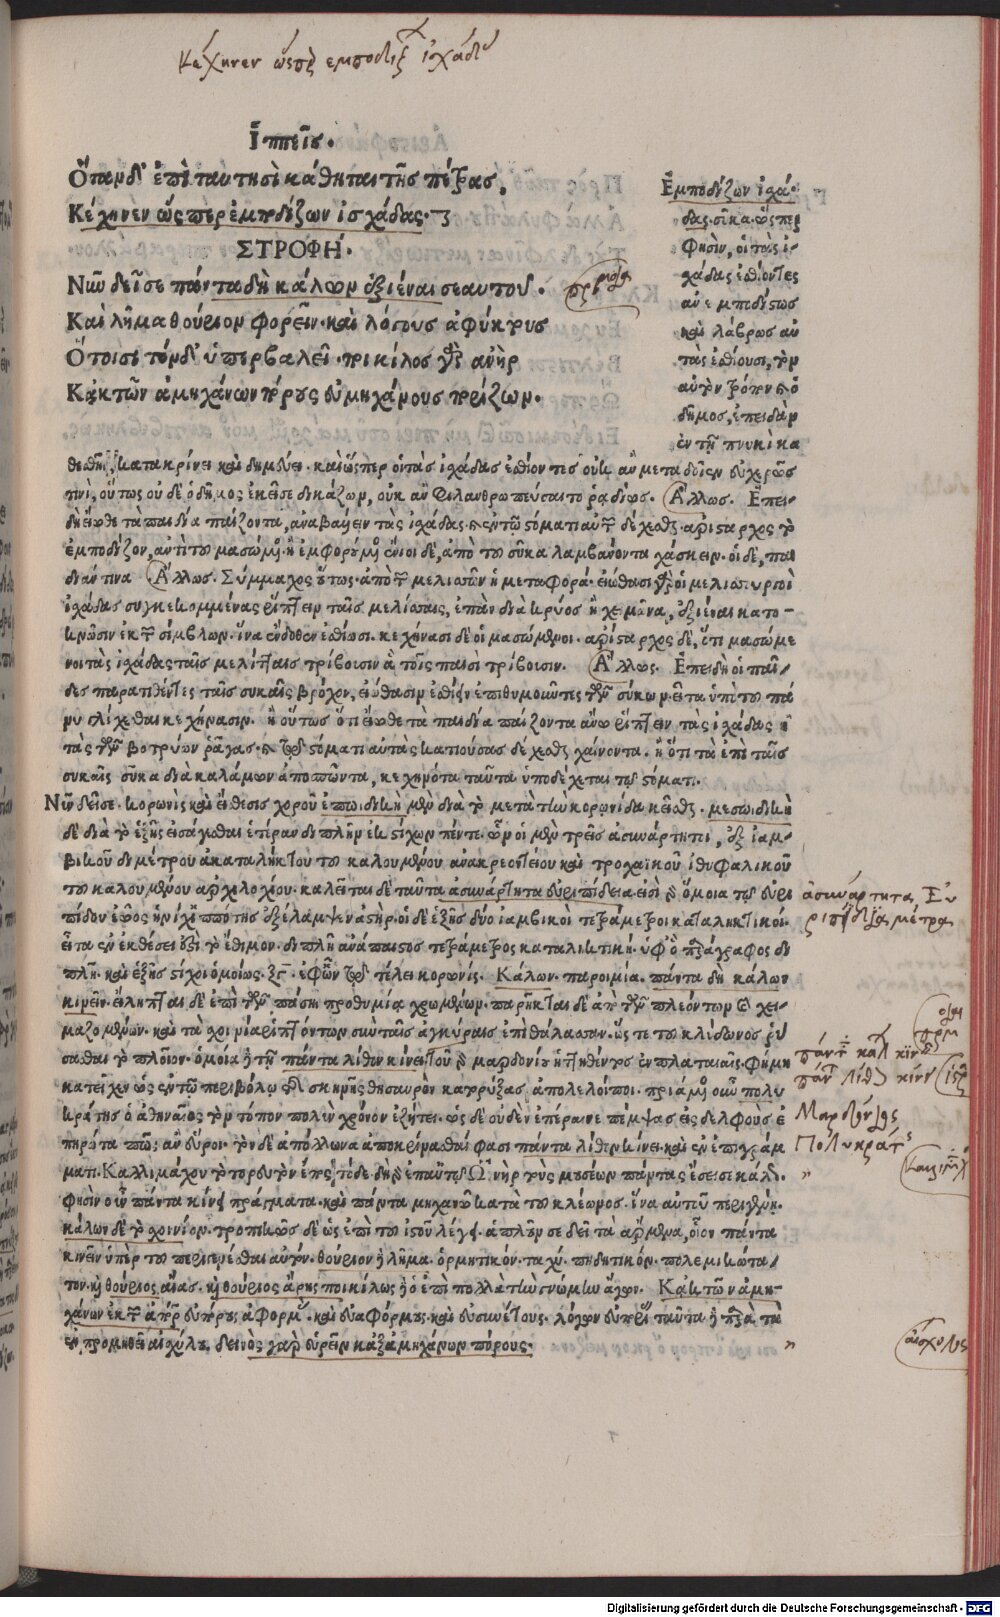 Κέχηνεν ὥσπερ ἐμποδίζων ἰσχάδας
Ἱππεῖς.
Ὅταν δ' ἐπὶ ταυτησὶ κάθηται τῆς πέτρας,
Κέχηνεν ὥσπερ ἐμποδίζων ἰσχάδας.
ΣΤΡΟΦΉ.
Νῦν δεῖ σε πάντα δὴ κάλων ἐξιέναι σεαυτοῦ.
Καὶ λῆμα θούριον φορεῖν. καὶ λόγους ἀφύκτους
Ὅτοισι τόνδ' ὑπερβαλεῖ. ποικίλος γὰρ ἁνὴρ
Κἀκ τῶν ἀμηχάνων πόρους εὐμηχάνους πορίζων.
Ἐμποδίζων ἰσχά-
δας. σῦκα. ὥσπερ
φησὶν, οἱ τὰς ἰ-
σχάδας ἐσθίοντες
καὶ λάβρως αὐ
τὰς ἐσθίουσι, τὸν
αὐτὸν τρόπον καὶ ὁ
δῆμος, ἐπειδὰν
ἐν τῇ πνυκὶ κα
θεσθῇ, κατακρίνει καὶ δημεύει. καὶ ὥσπερ οἱ τὰς ἰσχάδας ἐσθίοντες οὐκ ἂν μεταδοῖεν εὐχερῶς
τινὶ, οὕτως οὐδὲ ὁ δῆμος ἐκεῖσε δικάζων, οὐκ ἂν φιλανθρωπεύσαιτο ῥᾳδίως. Ἄλλως. Ἐπει-
δὴ εἴωθε τὰ παιδία παίζοντα, ἀναβάλλειν τὰς ἰσχάδας καὶ ἐν τῷ στόματι αὐτ δέχεσθαι. ἀρίσταρχος τὸ
Ἄλλως. Σύμμαχος οὕτως. ἀπὸ τ μελισσῶν ἡ μεταφορά. εἰώθασι γὰρ οἱ μελισσουργοὶ
ἰσχάδας συγκεκομμένας ῥίπτειν ταῖς μελίσσαις, ἐπὰν διὰ κρύος ἢ χειμῶνα, ἐξιέναι κατο-
κνῶσιν ἐκ τ σίμβλων. ἵνα ἔνδοθεν ἐσθίωσι. κεχήνασι δὲ οἱ μασώμενοι. ἀρίσταρχος δὲ, ὅτι μασώμε
νοι τὰς ἰσχάδας ταῖς μελίτταις τρίβουσιν ἃ τοῖς παισὶ τρίβουσιν. Ἄλλως. Ἐπειδὴ οἱ παῖ-
δες παρατιθέντες ταῖς συκαῖς βρόχον, εἰώθασιν ἐσθίειν ἐπιθυμοῦντες τῶν σύκων. εἶτα ὑπὸ τοῦ πά
νυ γλίχεσθαι κεχήνασιν. ἢ οὕτως ὅτι εἴωθε τὰ παιδία παίζοντα ἄνω ῥίπτειν τὰς ἰσχάδας ἢ
τὰς τῶν βοτρύων ῥᾶγας. καὶ τῷ στόματι αὐτὰς κατιούσας δέχεσθαι χαίνοντα. ἢ ὅτι τὰ ἐπὶ ταῖς
συκαῖς σῦκα διὰ καλάμων ἀποσπῶντα, κεχηνότα ταῦτα ὑποδέχεται τῷ στόματι.
Νῦν δεῖ σε. κορωνὶς καὶ εἴσθεσις χοροῦ ἐπῳδικὴ μὲν διὰ τὸ μετὰ τὴν κορωνίδα κεῖσθαι. μεσῳδικὴ
δὲ διὰ τὸ ἑξῆς εἰσάγεσθαι ἑτέραν διπλῆν ἐκ στίχων πέντε. ὧν οἱ μὲν τρεῖς ἀσυνάρτητοι, ἐξ ἰαμ-
βικοῦ διμέτρου ἀκαταλήκτου τοῦ καλουμένου ἀνακρεοντείου καὶ τροχαϊκοῦ ἰθυφαλικοῦ
τοῦ καλουμένου ἀρχιλοχίου. καλεῖται δὲ ταῦτα ἀσυνάρτητα εὐριπίδεια. εἰσὶ δὲ ὅμοια τῷ εὐρι
πίδου ἑῷος ἡνίχ' ἱππότης ἐξέλαμψεν ἀστήρ. οἱ δὲ ἑξῆς δύο ἰαμβικοὶ τετράμετροι καταληκτικοί.
εἶτα ἐν ἐκθέσει διπλῆ ἀνάπαιστος τετράμετρος καταληκτική. ὑφ' ὃ παράγραφος δι
πλῆ. καὶ ἑξῆς στίχοι ὁμοίως. ἐφ' ὧν τῷ τέλει κορωνίς. Κάλων. παροιμία. πάντα δὴ κάλων
κινεῖν. εἴληπται δὲ ἐπὶ τῶν πάσῃ προθυμίᾳ χρωμένων. παρῆκται δὲ ἀπὸ τῶν πλεόντων καὶ χει-
μαζομένων. καὶ τὰ σχοινία ῥιπτόντων σὺν ταῖς ἀγκύραις ἐπὶ θάλασσαν. ὥστε τοῦ κλύδωνος ῥύ
σασθαι τὸ πλοῖον. ὁμοία ἡ τῇ πάντα λίθον κίνει. τοῦ δὲ μαρδονίου ἡττηθέντος ἐν πλαταιαῖς. φήμη
κατεῖχεν ὡς ἐν τῷ περιβόλῳ τῆς σκηνῆς θησαυρὸν κατορύξας ἀπολελοίποι. πριάμενος οὖν πολυ
κράτης ὁ ἀθηναῖος τὸν τόπον πολὺν χρόνον ἐζήτει. ὡς δὲ οὐδὲν ἐπέραινε πέμψας εἰς δελφοὺς ἐ
πηρώτα πῶς ἂν εὕροι. τὸν δὲ ἀπόλλωνα ἀποκρίνασθαί φασι πάντα λίθον κίνει. καὶ ἐν ἐπιγράμ
ματι. Καλλιμάχου
φησὶν οὖν πάντα κίνει πράγματα. καὶ πάντα μηχανῶ κατὰ τοῦ κλέωνος. ἵνα αὐτοῦ περιγένῃ.
κάλων δὲ τὸ σχοινίον. τροπικῶς δὲ ὡς ἐπὶ τοῦ ἱστοῦ λέγει. ἁπλοῦν σε δεῖ τὰ ἄρμενα, οἷον πάντα
κινεῖν ὑπὲρ τοῦ περιγενέσθαι αὐτόν. θούριον ἡ λῆμα. ὁρμητικόν. ταχύ. πηδητικόν. πολεμικώτα
τον. καὶ θούριος αἴας. καὶ θούριος ἄρης ποικίλως ἡ ὁ ἐπὶ πολλὰ τὴν γνώμην ἄγων. Κἀκ τῶν ἀμη-
χάνων ἐκ τ ἀπόρων εὐπόρους ἀφορμάς. καὶ διαφόρους. καὶ δυσσυνέτους. λόγων εὑπεῖν ταῦτα ἡ παρὰ τὰ
ἐν προμηθεῖ αἰσχύλου. δεινὸς γὰρ εὑρεῖν κἀξ ἀμηχάνων πόρους.
ἀσυνάρτητα Εὐ
ριπίδεια μέτρα
παροιμ
πάντα καλ κιν
πάντ λιθ κιν
Μαρδόνιος
Πολυκράτης
αἰσχύλος
Digitalisierung gefördert durch die Deutsche Forschungsgemeinschaft - DFG